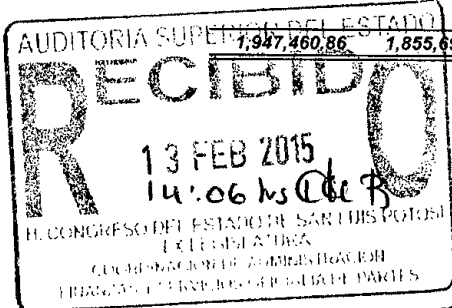 AUDITORÍA SUPERIOR DEL ESTADO
1,947,460.86 1,855,69
RECIBIDO
13 FEB 2015
14:06 hs
H. CONGRESO DEL ESTADO DE SAN LUIS POTOSI
LEGISLATURA
COORDINACION DE ADMINISTRACION
FINANZAS Y SERVICIOS OFICIALIA DE PARTES